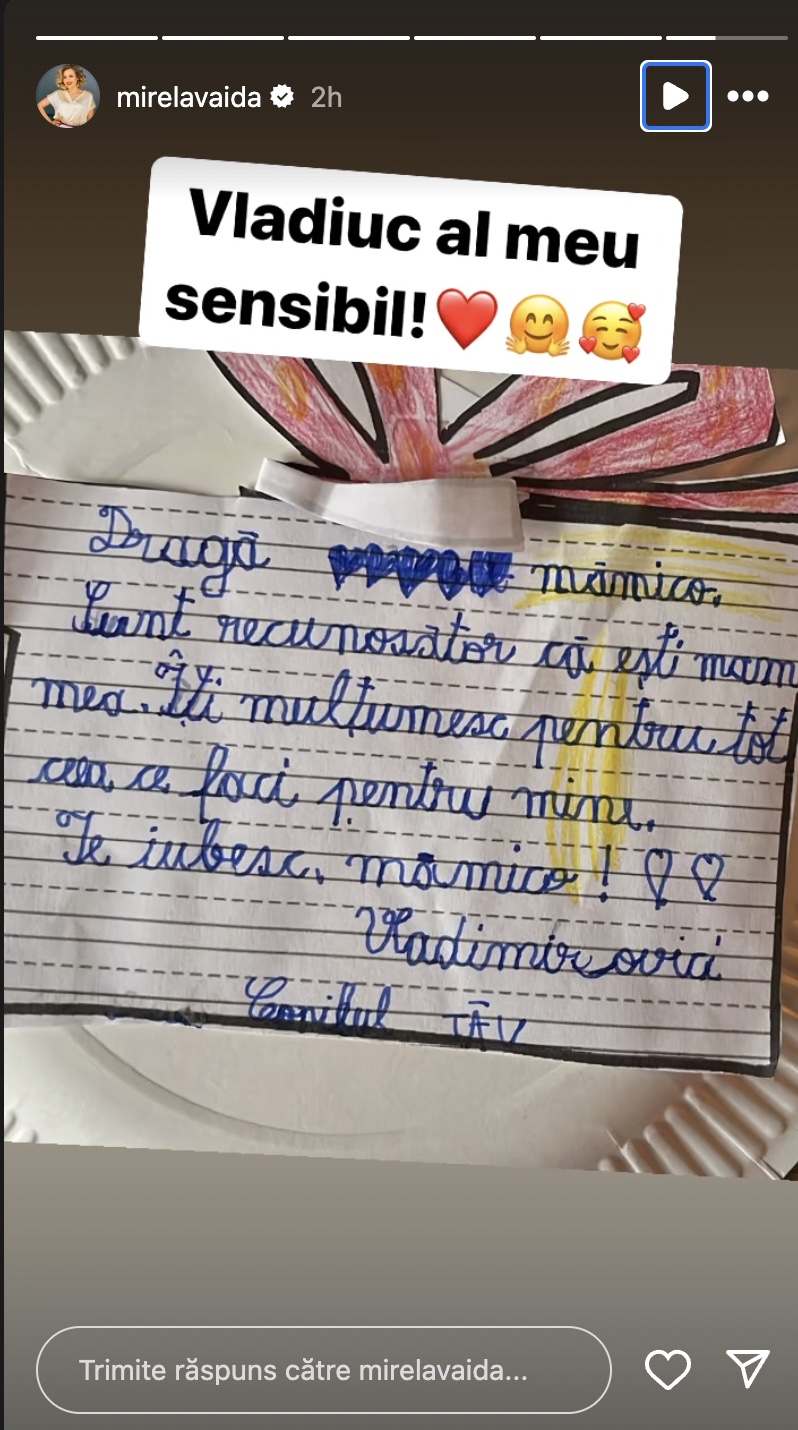 mirelavaida 2h
Vladiuc al meu
sensibil!❤️🤗🥰
Dragă mămico,
Sunt recunosător că ești mam
mea. Îți mulțumesc pentru tot
ceea ce faci pentru mine.
Te iubesc, mămico!
Vladimirovici
TĂU
Trimite răspuns către mirelavaida...